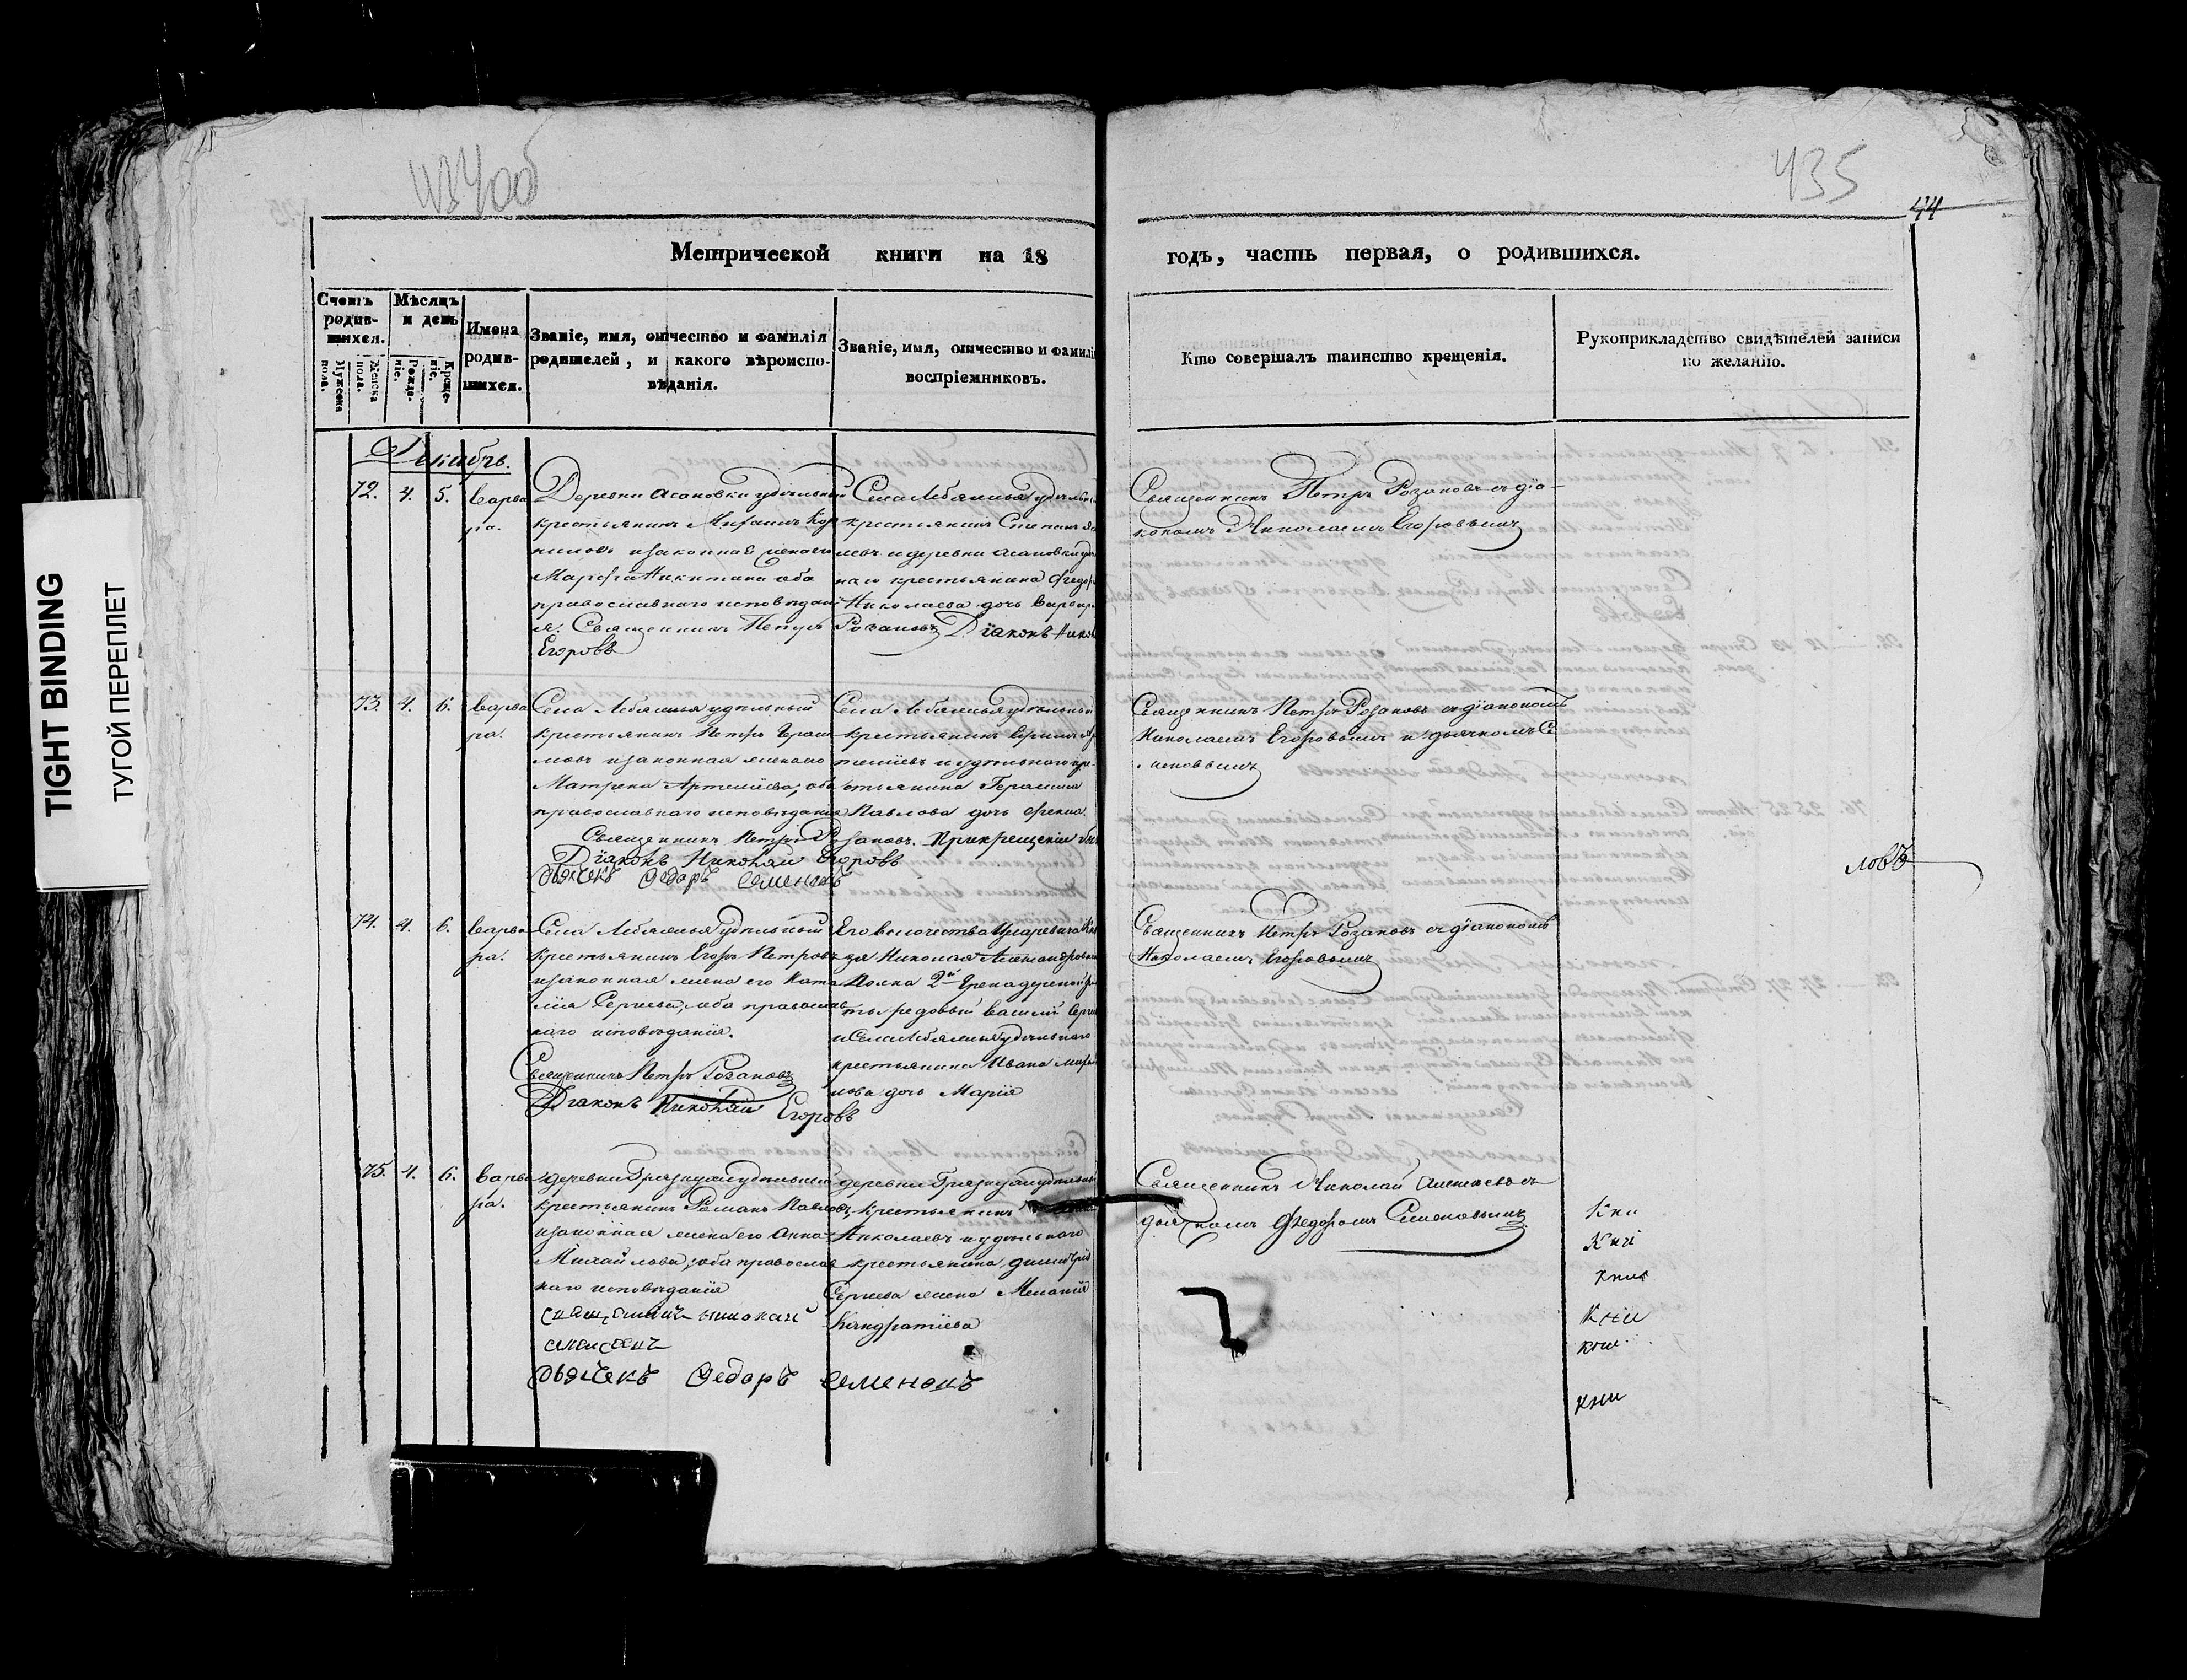 434об
435
44
Метрической книги на 18
годъ, часть первая, о родившихся.
Счетъ родив-
шихся.
Мужеска пола.
Женска пола.
Мѣсяцъ
и день
Рожде-
ніе.
Креще-
ніе.
Имена
родив-
шихся.
Званіе, имя, отчество и фамилія
родителей, и какого вѣроиспо-
вѣданія.
Званіе, имя, отчество и фамилі
воспріемниковъ.
Кто совершалъ таинство крещенія.
Рукоприкладство свидѣтелей записи
по желанію.
Декабрь.
72. 4. 5. Варва
ра.
Деревни Асановки удѣльный
крестьянинъ Михаилъ Кор
ниловъ и законная
Марфа Никитина оба
православнаго исповѣдані
я. Священникъ Петръ Розановъ Дїаконъ Никол
Егоровъ
Села Лебяжья удѣльн
крестьянинъ Степанъ
левъ и деревни Асановки уд
наго крестьянина Федор
Николаева дочь Варвар
Священникъ Петръ Розановъ съ дїа-
кономъ Николаемъ Егоровымъ
73. 4. 6. Варва
ра.
Села Лебяжья удѣльный
крестьянинъ Петръ Герас
мовъ и законная жена его
Матрена Артемїева, оба
православнаго исповѣданія
Священникъ Петръ Розановъ. При крещеніи былъ
Дїаконъ Николай Егоровъ
дьячекъ Федоръ Семеновъ
Села Лебяжья удѣльный
крестьянинъ Ефимъ Ар
темїевъ и удѣльнаго кре
стьянина Герасима
Павлова дочь Фекла.
Священникъ Петръ Розановъ съ дїакономъ
Николаемъ Егоровымъ и дьячкомъ Се
меновымъ
ловъ
74. 4. 6. Варва
ра.
Села Лебяжья удѣльный
крестьянинъ Егоръ Петровъ
и законная жена его Ната
лїя Сергѣева, оба православ
наго исповѣданїя.
Священникъ Петръ Розановъ
Дїаконъ Николай Егоровъ
Его высочества Цесаревича Кня
зя Николая Александрови
Полка 2й Гренадерской ро
ты рядовый Василїй Серге
и Села Лебяжья удѣльнаго
крестьянина Ивана Миха
лова дочь Марїя
Священникъ Петръ Розановъ съ дїакономъ
Николаемъ Егоровымъ
75. 4. 6. Варва
ра.
деревни Грязнухи удѣльный
крестьянинъ Романъ Павловъ,
и законная жена его Анна
Михайлова, оба православ
наго исповѣданїя
священникъ николай
алексеевъ
дьячекъ Федоръ Семеновъ
деревни Грязнухи удѣльный
крестьянинъ
Николаевъ и удѣльнаго
крестьянина Димитрїя
Сергѣева жена Меланїя
Кандратїева
Священникъ Николай Алексѣевъ съ
дьячкомъ Федоромъ Семеновымъ
Кни
Кни
Книг
Кни
кни
кни
TIGHT BINDING
ТУГОЙ ПЕРЕПЛЕТ